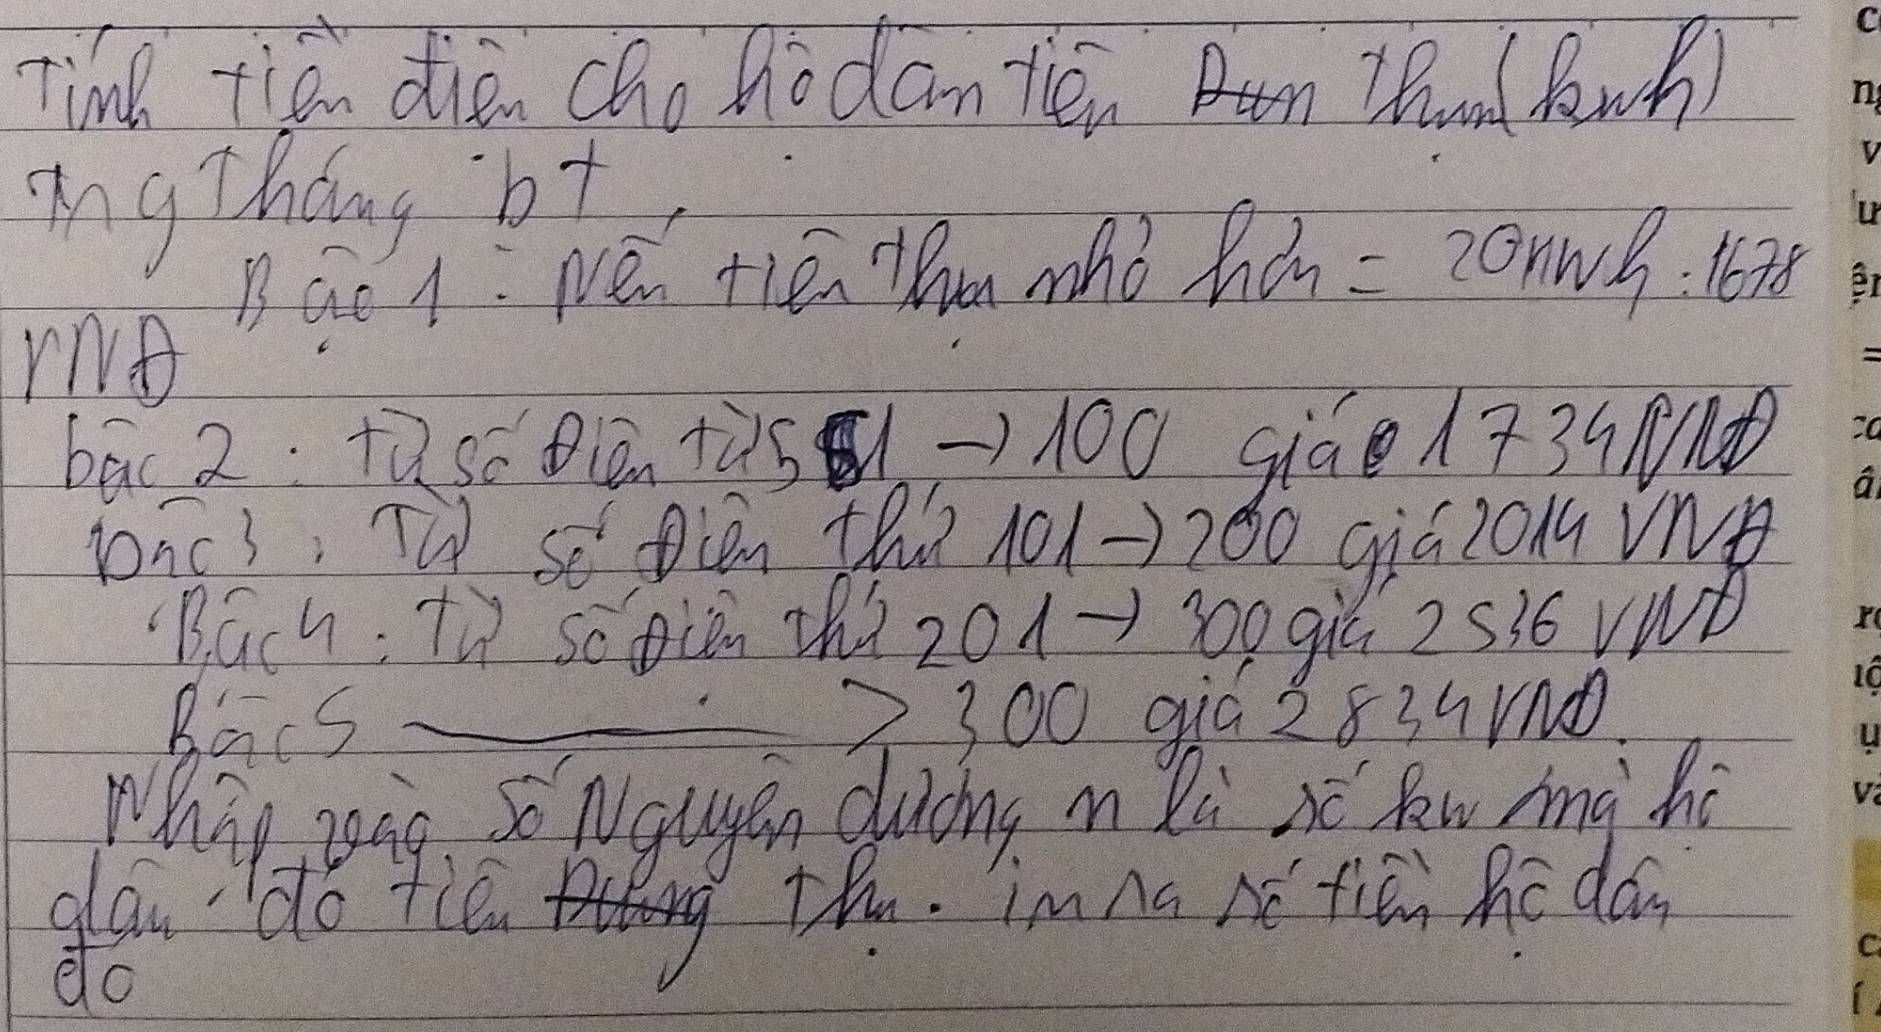 Tính tiền điện cho hộ dân tiên thụ (kwh)
tng tháng bt
Bậc 1: Nếu tiên thụ nhỏ hơn = 20nwh: 1678
VNĐ
bậc 2: từ số điện từ 51 → 100 giá 1734 VNĐ
bậc 3: Từ số điện thứ 101 → 200 giá 2014 VNĐ
Bậc 4: từ số điện thứ 201 → 300 giá 2536 VNĐ
Bậc 5 > 300 giá 2834 VNĐ.
Nhập vào số Nguyên dương n là số kw mà hộ
dân đó tiên thụ. in ra số tiền hộ dân
đó
c
ng
v
ện
=
câ
rộ
ụ
và
c